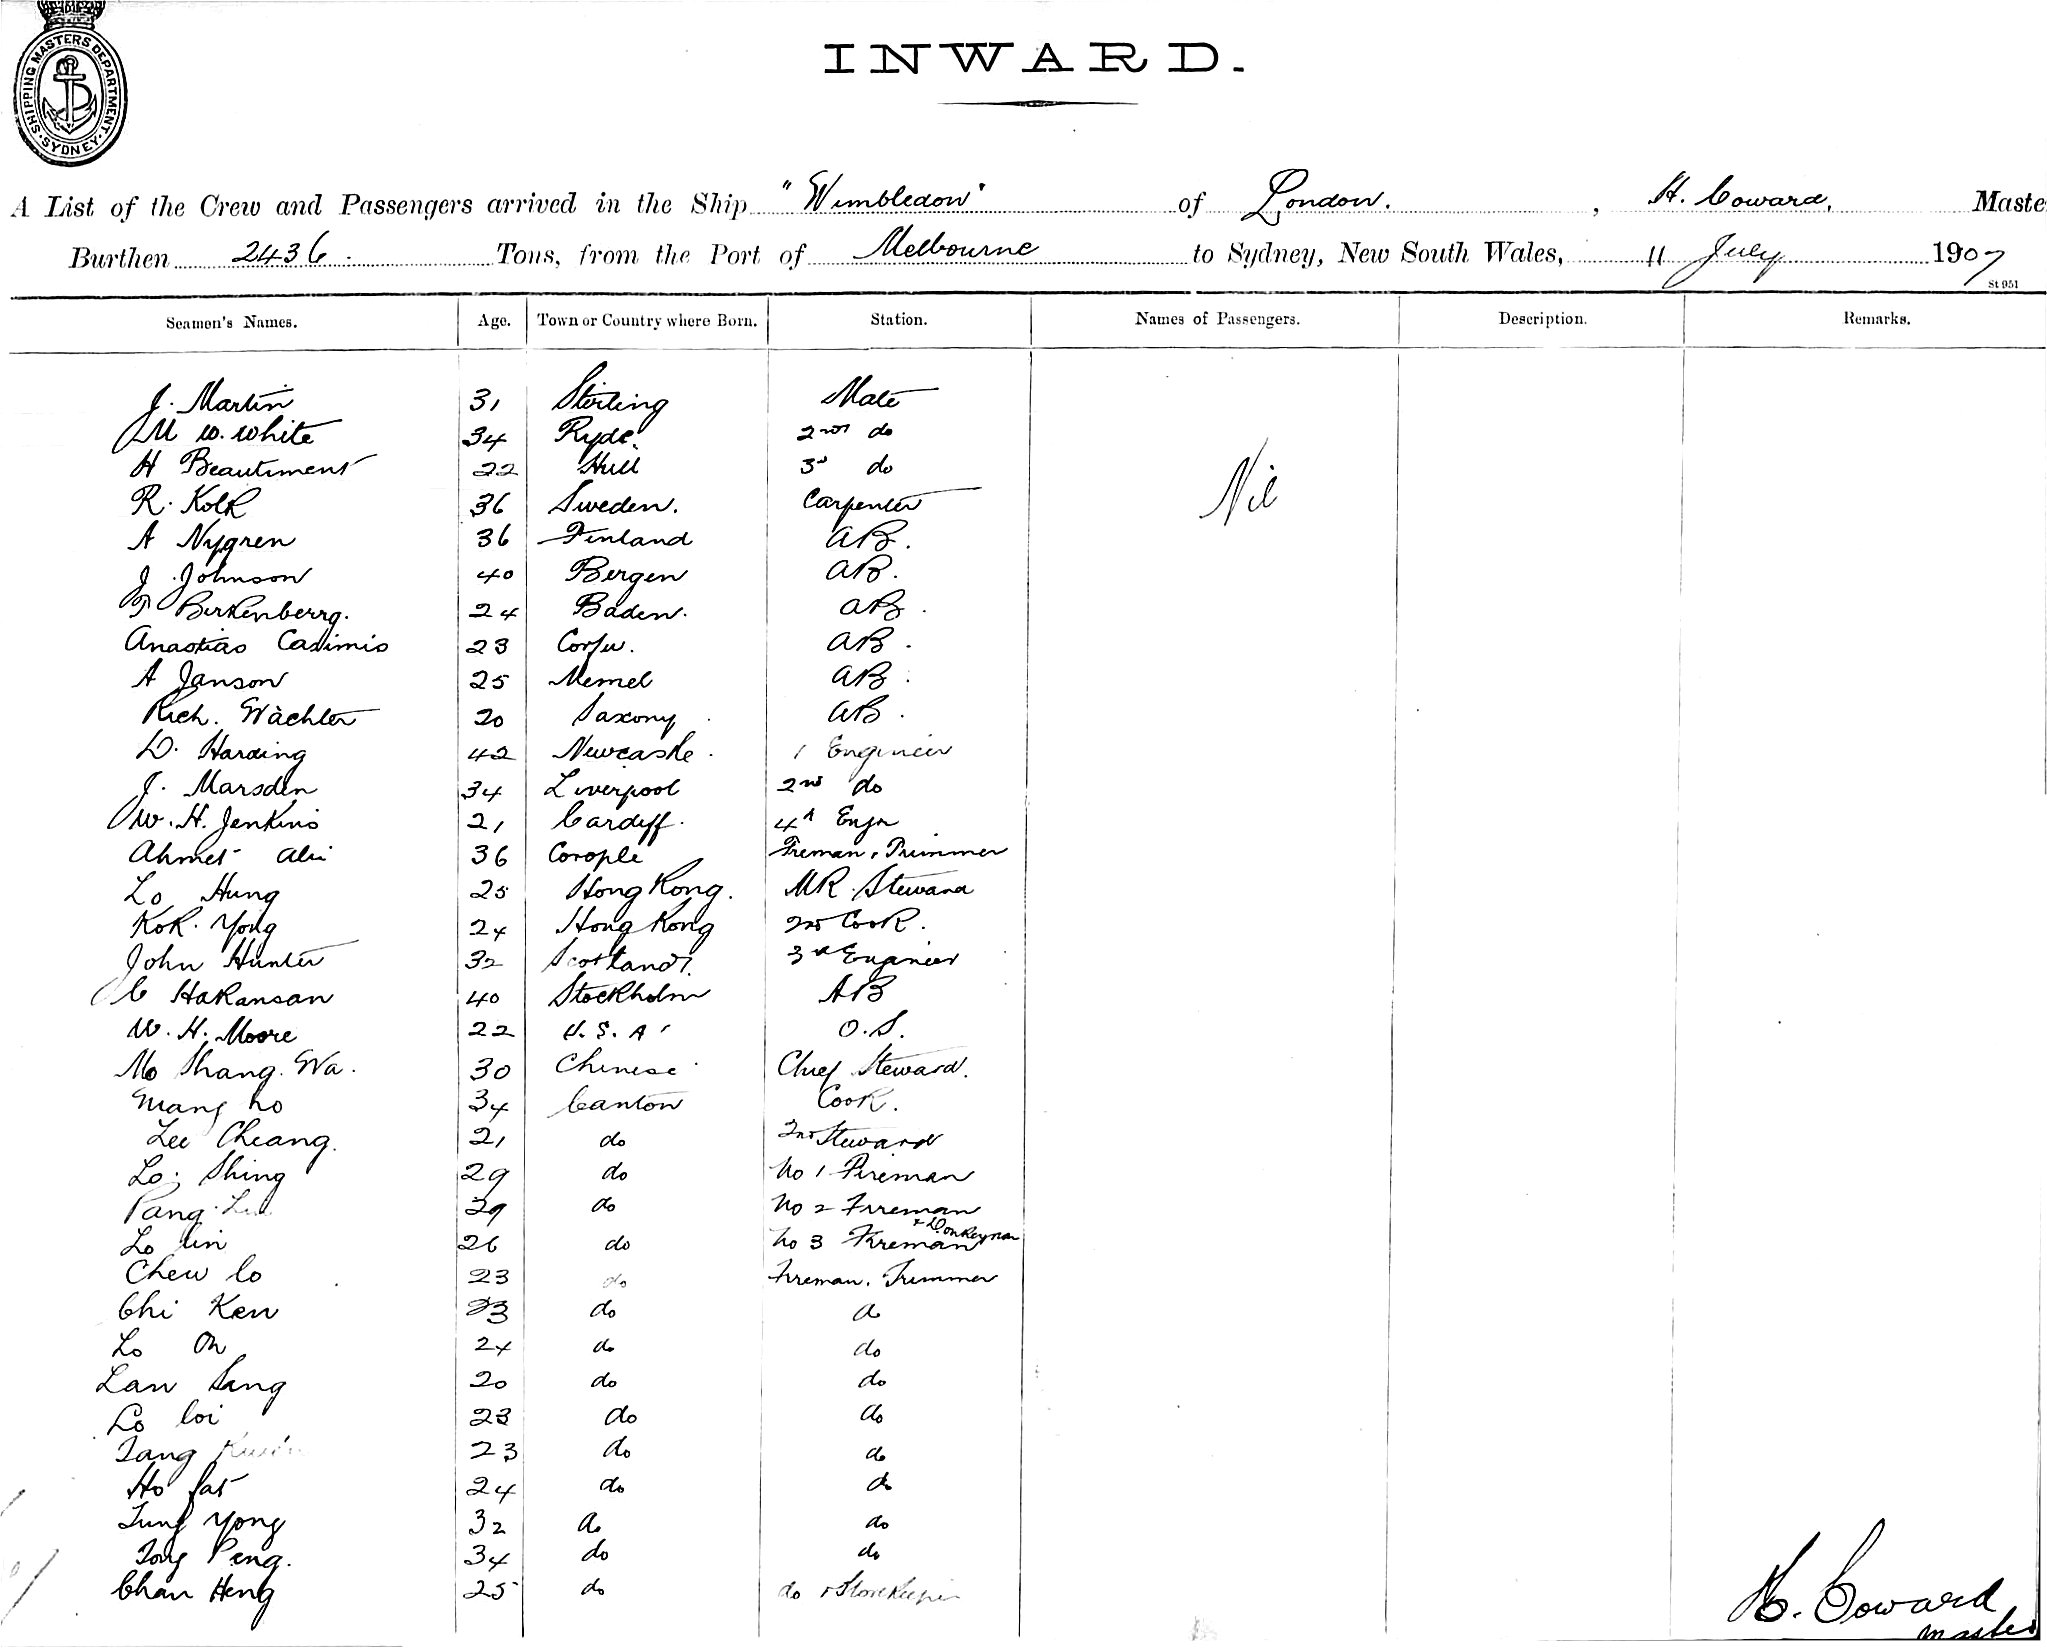 SHIPPING MASTERS DEPARTMENT
SYDNEY
INWARD.
A List of the Crew and Passengers arrived in the Ship "Wimbledon" of London. , H. Coward, Maste
Burthen 2436 Tons, from the Port of Melbourne to Sydney, New South Wales, 11 July 1907
St 951
Seamen's Names. Age. Town or Country where Born. Station. Names of Passengers. Description. Remarks.
J. Martin 31 Stirling Mate
M W. White 34 Ryde. 2nd do
H Beautiment 22 Hull 3d do
Nil
R. Kolk 36 Sweden. Carpenter
A Nygren 36 Finland AB.
J Johnson 40 Bergen AB.
Birkenberrg. 24 Baden. AB.
Anastias Casimis 23 Corfu. AB.
A Janson 25 Memel AB.
Rich. Wächter 20 Saxony AB.
D. Harding 42 Newcastle. 1 Engineer
J. Marsden 34 Liverpool 2nd do
W. H. Jenkins 21 Cardiff. 4th Engr
Ahmet Ali 36 Fireman, Trimmer
Lo Hung 25 Hong Kong. MR Steward
Kok. Yong 24 Hong Kong 2nd Cook.
John Hunter 32 Scotland. 3rd Engineer
C Hakansan 40 Stockholm AB
W. H. Moore 22 U.S.A. O.S.
Mo Shang. Wa. 30 Chinese Chief Steward.
Mang Lo 34 Canton Cook.
Lee Cheang. 21 do 2nd Steward
Lo Shing 29 do No 1 Fireman
Pang 29 do No 2 Fireman
Lo Lin 26 do No 3 Fireman & Donkeyman
Chew Lo 23 do Fireman, Trimmer
Chi Ken 23 do do
Lo On 24 do do
Lan Sang 20 do do
Lo Loi 23 do do
Tang 23 do do
Ho Sat 24 do do
Tung Yong 32 do do
Tong Peng. 34 do do
Chan Heng 25 do do & Storekeeper
H. Coward
Master